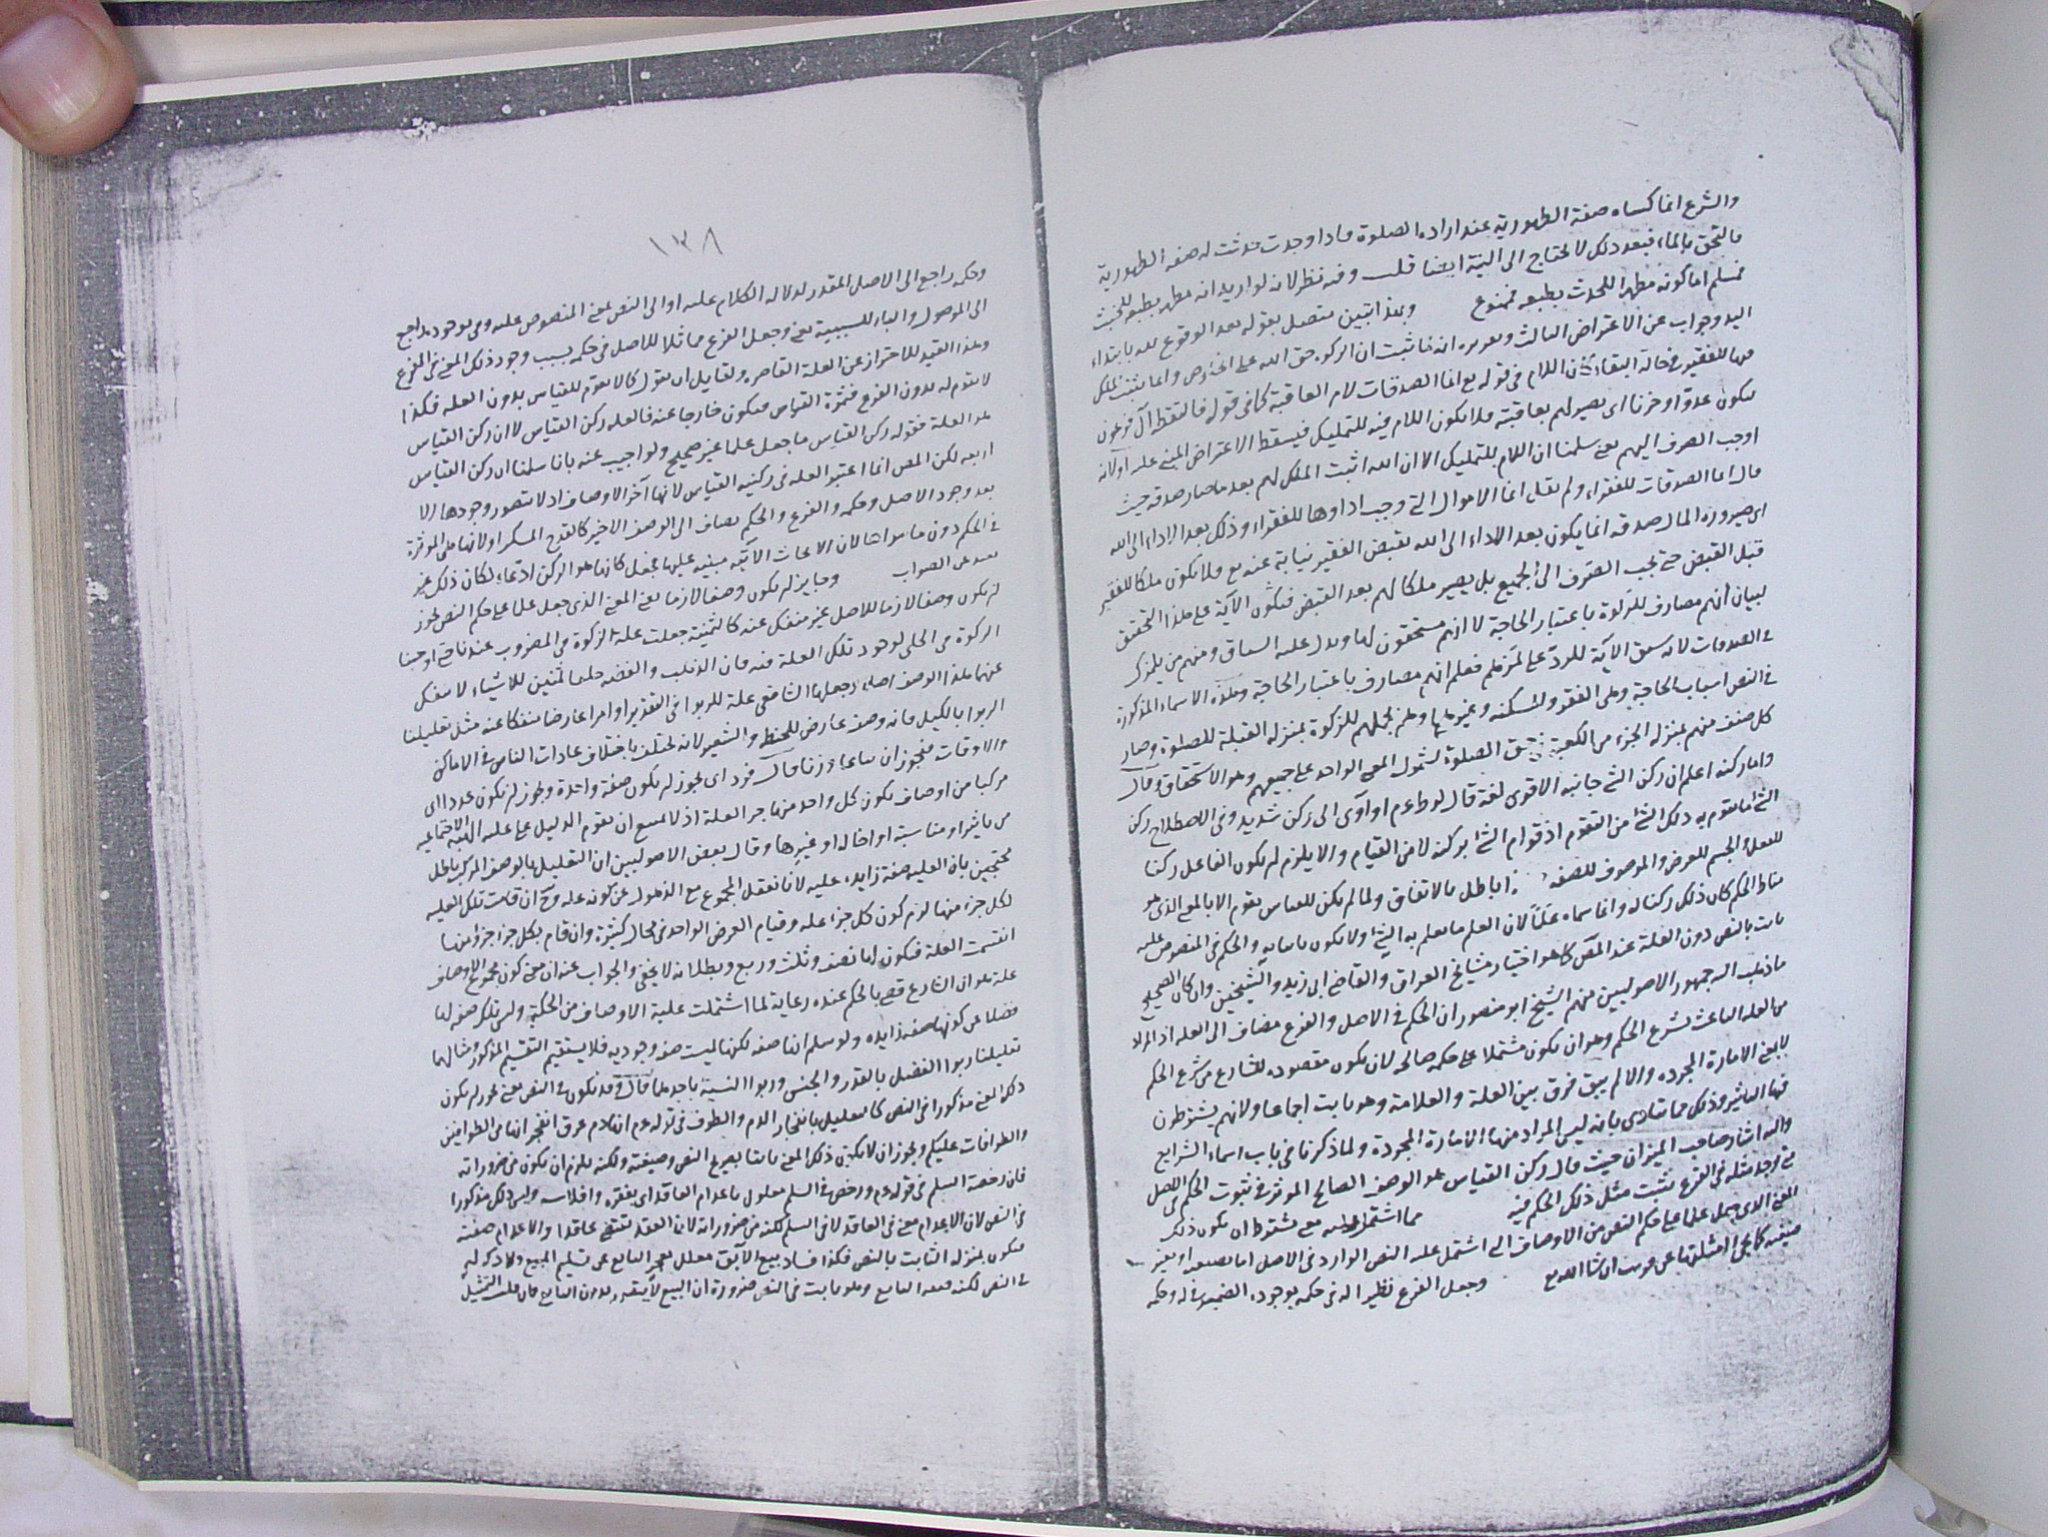 والشرع انما كساه صفة الطهورية عند ارادة الصلوة فاذا وجدت حدثت له صفه الطهورية
فالتحق بالماء فبعد ذلك لا يحتاج الى النية ايضا قلت وفيه نظر لانه لو اريد انه مطهر بطبعه للخبث
فمسلم اما كونه مطهرا للحدث بطبعه فممنوع وبهذا تبين متصل بقوله بعد الوقوع لله بابتداء
اليد وجواب عن الاعتراض الثالث وتقريره انه لما ثبت ان الزكوة حق الله على الخلوص وانما يثبت الملك
فيها للفقير في حالة البقاء كان اللام في قوله تع انما الصدقات لام العاقبة كما في قوله فالتقطه آل فرعون
ليكون عدوا وحزنا اى يصير لهم بعاقبته فلا يكون اللام فيه للتمليك فيسقط الاعتراض المبنى عليه اولانه
اوجب الصرف اليهم يعنى سلمنا ان اللام للتمليك الا ان الله اثبت الملك لهم بعد ما صار صدقة حيث
قال انما الصدقات للفقراء ولم يقل انما الاموال التى وجب اداوها للفقراء وذلك بعد الاداء الى الله
اى صيرورة المال صدقه انما يكون بعد الاداء الى الله بقبض الفقير نيابة عنه تع فلا يكون ملكا للفقير
قبل القبض حتى يجب الصرف الى الجميع بل يصير ملكا لهم بعد القبض فتكون الآية على هذا التحقيق
لبيان انهم مصارف للزكوة باعتبار الحاجة لا انهم مستحقون لها ويدل عليه السباق ومنهم من يلمزك
في الصدقات لانه سيق الآية للرد على لمزهم فعلم انهم مصارف باعتبار الحاجة وهذه الاسماء المذكورة
في النص اسباب الحاجة وهى الفقر والمسكنه وغيرهما وهم بجملتهم للزكوة بمنزلة القبلة للصلوة وصار
كل صنف منهم بمنزلة الجزء من الكعبة في حق الصلوة لشمول المعنى الواحد على جميعهم وهو الاستحقاق وقال
واما ركنه اعلم ان ركن الشئ جانبه الاقوى لغة قال لوط عم او آوى الى ركن شديد وفي الاصطلاح ركن
الشئ ما يقوم به ذلك الشئ من التقوم اذ قوام الشئ بركنه لا من القيام والا يلزم ان يكون الفاعل ركنا
للفعل والجسم للعرض والموصوف للصفة وهذا باطل بالاتفاق ولما لم يكن للقياس تقوم الا بالمعنى الذى هو
مناط الحكم كان ذلك ركنا له وانما سماه عَلَماً لان العلم ما يعلم به الشئ ولا يكون ثابتا به والحكم في المنصوص عليه
ثابت بالنص دون العلة عند المص كما هو اختيار مشايخ العراق والقاضى ابى زيد والشيخين وان كان الصحيح
ما ذهب اليه جمهور الاصوليين منهم الشيخ ابو منصور ان الحكم في الاصل والفرع مضاف الى العله اذ المراد
من العله الباعث لشرع الحكم وهو ان يكون مشتملا على حكمة صالحه لان يكون مقصوده للشارع من شرع الحكم
لا بمعنى الامارة المجرده والا لم يبق فرق بين العلة والعلامة وهو ثابت اجماعا ولانهم يشترطون
فيها التاثير وذلك مما ينادى بانه ليس المراد منها الامارة المجردة ولما ذكرنا في باب اسماء الشرايع
واليه اشار صاحب الميزان حيث قال ركن القياس هو الوصف الصالح المؤثر في ثبوت الحكم في الاصل
متى وجد مثله في الفرع يثبت مثل ذلك الحكم فيه مما اشتمل عليه معنى يشترط ان يكون ذلك
المعنى الذى جعل علما على حكم النص من الاوصاف التى اشتمل عليه النص الوارد في الاصل اما بصيغته او بغير
صيغته كما يجئ امثلتها عن قريب ان شاء الله تع وجعل الفرع نظيرا له في حكمه بوجوده الضمير في له وحكمه
١٣٨
وحكمه راجع الى الاصل المقدر لدلالة الكلام عليه او الى النص بمعنى المنصوص عليه وفى بوجوده راجع
الى الموصول والباء للسببية يعنى وجعل الفرع مماثلا للاصل في حكمه بسبب وجود ذلك المعنى في الفرع
وهذا القيد للاحتراز عن العلة القاصره ولقايل ان يقول كما لا يقوم للقياس بدون العله فكذا
لا يقوم له بدون الفرع فثمرة القياس فيكون خارجا عنه فالعله ركن القياس لا ان ركن القياس
هو العلة فقوله ركن القياس ما جعل علما غير صحيح ولو اجيب عنه بانا سلمنا ان ركن القياس
اربعه لكن المص انما اعتبر العله في ركنيه القياس لانها آخر الاوصاف اذ لا يتصور وجودها الا
بعد وجود الاصل وحكمه والفرع والحكم يضاف الى الوصف الاخير كالقدح المسكر او لانها هى المؤثرة
في الحكم دون ما سواها لان الابحاث الآتيه مبنيه عليها فجعل كانها هو الركن ادعاء لكان ذلك غير
بعيد عن الصواب وجايز ان يكون وصفا لازما يعنى المعنى الذى جعل علما على حكم النص يجوز
ان يكون وصفا لازما للاصل غير منفك عنه كالثمنية جعلت علة الزكوة في المضروب عندنا حتى اوجبنا
الزكوة في الحلى لوجود تلك العلة فيه فان الذهب والفضه خلقا ثمنين للاشياء لا ينفك
عنهما هذا الوصف اصلا وجعلها الشافعى علة للربوا في النقدين او امرا عارضا منفكا عنه مثل تعليلنا
الربوا بالكيل فانه وصف عارض للحنطه والشعير لانه يختلف باختلاف عادات الناس في الاماكن
والاوقات فيجوز ان يباع وزنا قال فردا اى يجوز ان يكون صفة واحدة ويجوز ان يكون عددا اى
مركبا من اوصاف يكون كل واحد منها جزء العلة اذ لا يمتنع ان يقوم الدليل على علية الهيئة الاجتماعيه
من تاثير او مناسبة او اخاله او غيرها وقال بعض الاصوليين ان التعليل بالوصف المركب باطل
محتجين بان العليه صفة زايده عليه لانا نعقل المجموع مع الذهول عن كونه عله وح ان قامت تلك العليه
لكل جزء منها لزم كون كل جزء عله وقيام العرض الواحد في محال كثيرة وان قام بكل جزء جزؤ منها
انقسمت العلة فيكون لها نصف وثلث وربع وبطلانه لا يخفى والجواب عنه ان معنى كون مجموع الاوصاف
علة هو ان الشارع قضى بالحكم عنده رعاية لما اشتملت علية الاوصاف من الحكمة وليس تلك صفه لها
فضلا عن كونها صفه زايده ولو سلم انها صفه لكنها ليست صفه وجوديه فلا يستقيم التقسيم المذكور مثالها
تعليلنا ربوا الفضل بالقدر والجنس وربوا النسية باحدهما قال وقد يكون في النص يعنى يجوز ان يكون
ذلك المعنى مذكورا في النص كالتعليل بانفجار الدم والطوف في قوله عم انها دم عرق انفجر انها من الطوافين
والطوافات عليكم ويجوز ان لا يكون ذلك المعنى ثابتا بصريح النص وصيغته ولكنه يلزم ان يكون من ضروراته
فان رخصة السلم في قوله عم ورخص في السلم معلول باعدام العاقد اى بفقره وافلاسه وليس ذلك مذكورا
في النص لان الاعدام معنى في العاقد لا في السلم لكنه من ضروراته لان العقد يقتضى عاقدا والاعدام صفته
فيكون بمنزلة الثابت بالنص فكذا فساد بيع الآبق معلل بعجز البايع عن تسليم المبيع ولا ذكر له
في النص لكنه صفه البايع وهو ثابت في النص ضرورة ان البيع لا يتقرر بدون البايع فان قلت التمثيل